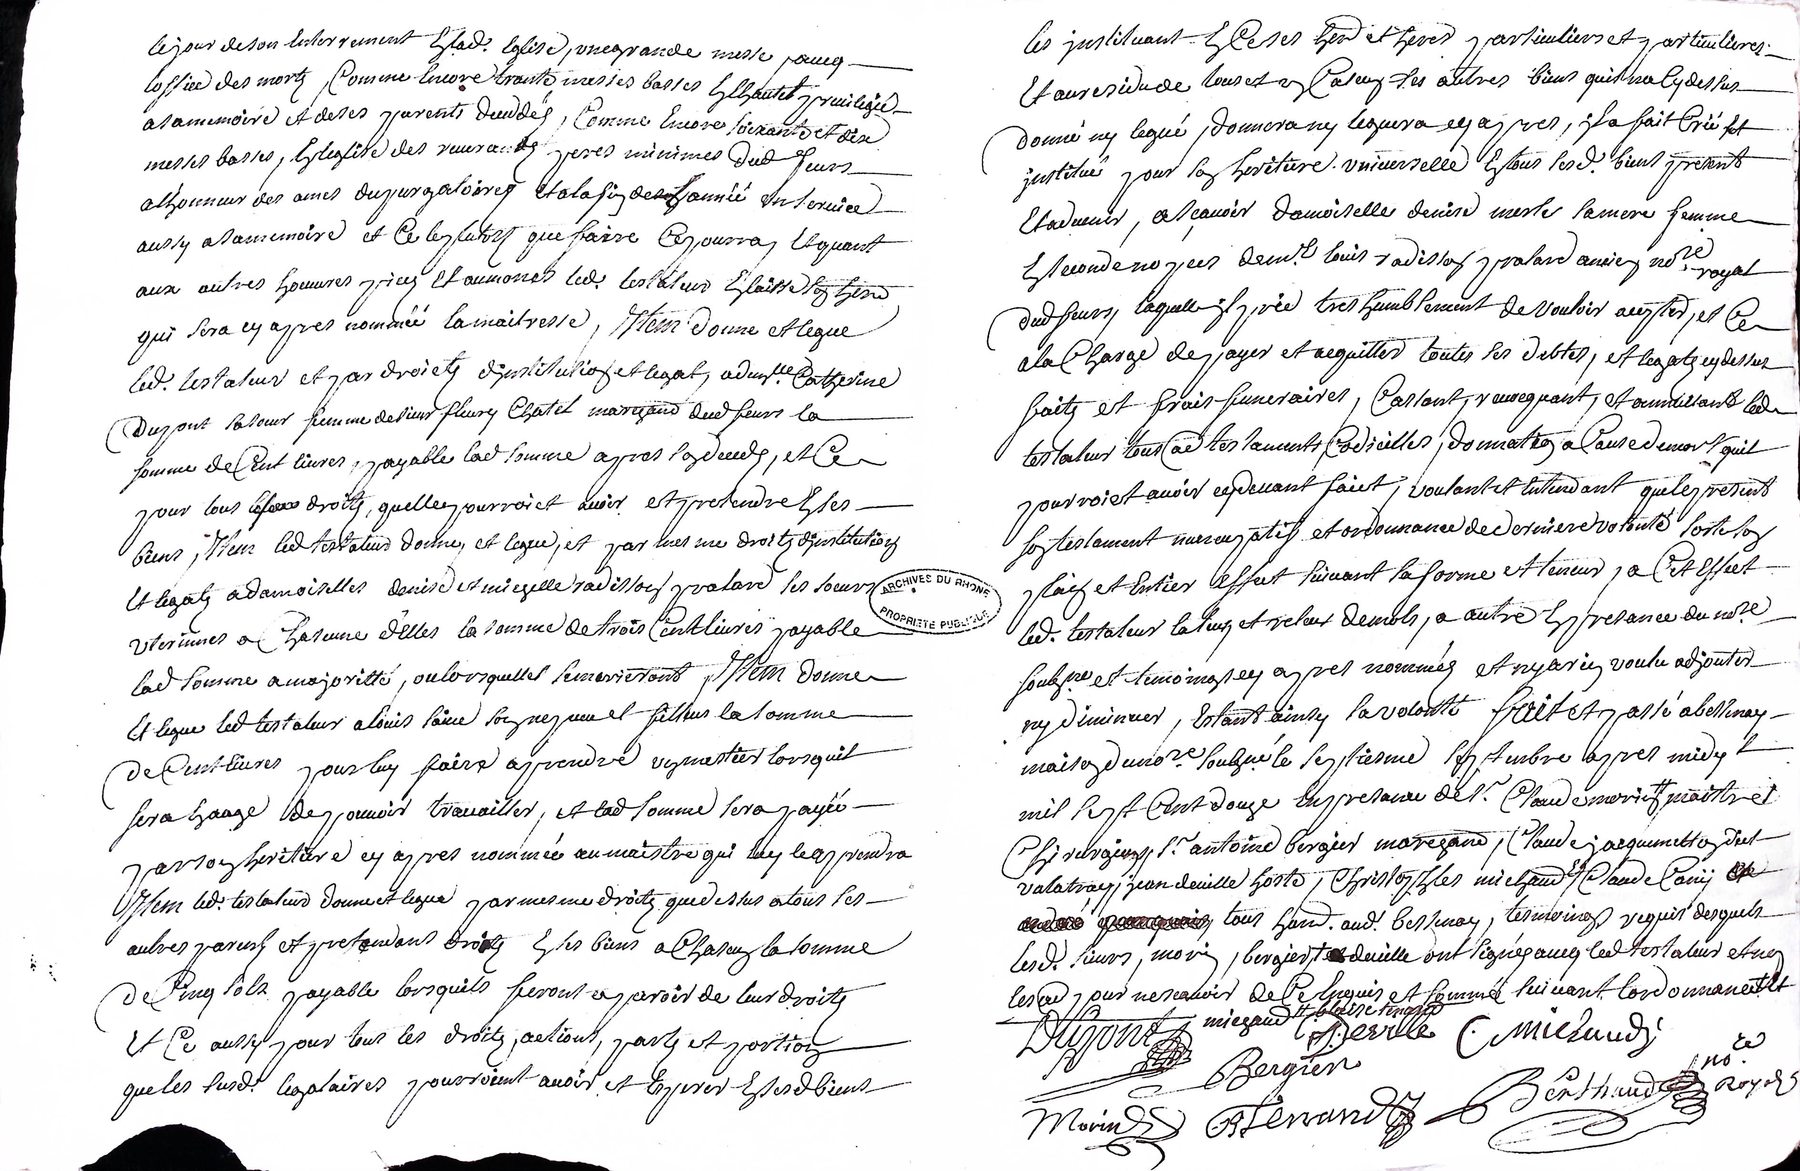 le jour de son enterrement en lad. eglise, une grande messe avecq
loffice des mortz, Comme encore trante messes basses en lhautel privilegié
a sa memoire et de ses parents deceddés, Comme encore soixante et dix
messes basses, en leglise des reverands peres minimes dud feurs
a lhonneur des ames du purgatoire et a la fin de lannéé un service
aussy a sa memoire et Ce le plutost que faire Ce pourra, Et quant
aux autres heuvres pies Et aumones led. testateur en laisse son here
qui sera cy apres nomméé la maitresse, Item donne et legue
led. testateur et par droicts dinstitution et legat, a dam.lle Catherine
Dupont sa sœur femme de sieur fleury Chatel marchand dud feurs la
somme de Cent livres, payable lad somme apres son deceds, et Ce
pour tous droits, quelle pourroiet avoir et pretendre en ses
biens, Item led testateur donne, et legue, et par mesme droitz dinstitution
Et legatz a damoiselles denise et michelle radisson pralard ses sœurs
uterinnes a Chascune d'elles la somme de trois Cent livres payable
lad somme a majoritté, ou lorsquelles se marieront, Item donne
Et legue led testateur a louis son nepveu et filleus la somme
de Cent livres pour luy faire apprendre un mestier lorsquil
sera en aage de pouvoir travailler, et lad somme sera payéé
par son heritiere cy apres nommée au maistre qui luy le apprendra
Item led. testateur donne et legue par mesme droitz que dessus a tous ses
autres parens et pretendans droitz en ses biens a Chascun la somme
de Cinq sols payable lorsquils feront aparoir de leur droitz
Et Ce aussy pour tous les droitz, actions, parts et portion
que les susd. legataires pourroient avoir et Esperer en sesd biens
les instituant en Ce ses herd et heres particuliers et particulieres.
Et au residu de tous et un Chascun ses autres biens quil na cy dessus
donné ny legué, donnera ny leguera cy apres, il a fait Créé et
institué pour son heritiere universelle en tous sesd. biens present
Et advenir, a sçavoir damoiselle denise merle sa mere femme
en seconde nopces de m.e louis radisson pralard ancien no.re royal
dud feurs, laquelle il prie tres humblement de vouloir accepter, et Ce
a la Charge de payer et acquitter toutes ses debtes, et legatz cy dessus
faitz et frais funeraires, Cassant, revocquant, et annullant led
testateur tous autres testaments, Codicilles, donnations a Cause de mort quil
pourroiet avoir cy devant faict, voulant et entendant que le present
son testament nuncupatif et ordonnance de derniere volonté sorte son
plain et Entier Effect suivant sa forme et teneur, a Cet Effect
led. testateur la leu et releu de mots, a autre en presance du no.re
soubz.ne et temoings cy apres nommés et ny a rien voulu adjouter
ny diminuer, Estant ainsy sa volonté fait et passé a bessenay
maison du no.re soubz.né le septiesme septembre apres midy
mil sept Cent douze en presance de s.r Claude morin maistre
Chirurgien, s.r antoine bergier marchand, Claude jacquemetton dict
valatray, jean deville hoste, Christophles michaud, Claude Cany
tous hand. aud. bessenay, tesmoings requis desquels
lesd. sieurs, morin, bergier, deville ont signés avecq led testateur et non
les aud pour ne scavoir de Ce Enquis et sommé suivant lordonnance
Dupont michaud ferrand Deville C. Michaud
Bergier
Morin Ferrand Berthaud no.re Royal
ARCHIVES DU RHONE
PROPRIETE PUBLIQUE